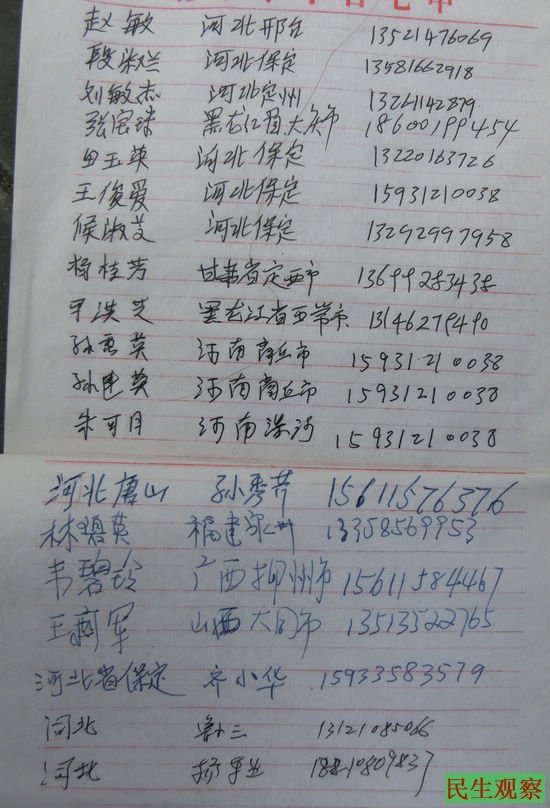 赵敏 河北邢台 13521476069
段彩兰 河北保定 13581662918
刘敏杰 河北定州 13261142879
张宝珠 黑龙江省大庆市 18600199454
田玉英 河北保定 13220163726
王俊爱 河北保定 15931210038
候淑芝 河北保定 13292997958
杨桂芳 甘肃省定西市 13699283438
洪芝 黑龙江省五常市 13146279490
孙惠英 河南商丘市 15931210038
孙 英 河南商丘市 15931210038
朱可月 河南漯河 15931210038
河北唐山 孙秀芹 15611576376
林碧英 福建泉州 13358569953
韦碧玲 广西柳州市 15611584467
王 军 山西大同市 13513522765
河北省保定 齐小华 15933583579
河北 三 13121085066
河北 杨
民生观察